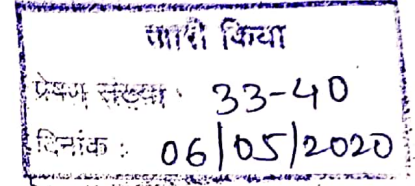 जारी किया
प्रेषण संख्या : 33-40
दिनांक : 06/05/2020